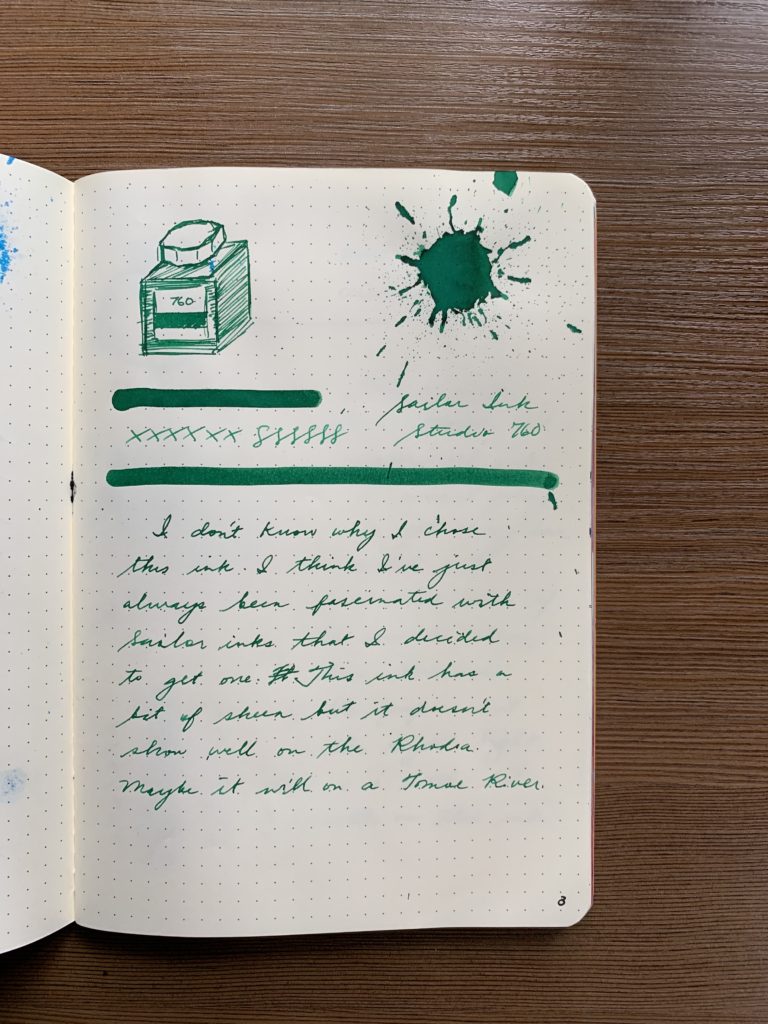 760
Sailor Ink
Studio 760
xxxxxx ssssss
I don't know why I chose
this ink. I think I've just
always been fascinated with
Sailor inks that I decided
to get one. This ink has a
bit of sheen but it doesn't
show well on the Rhodia.
Maybe it will on a Tomoe River.
8